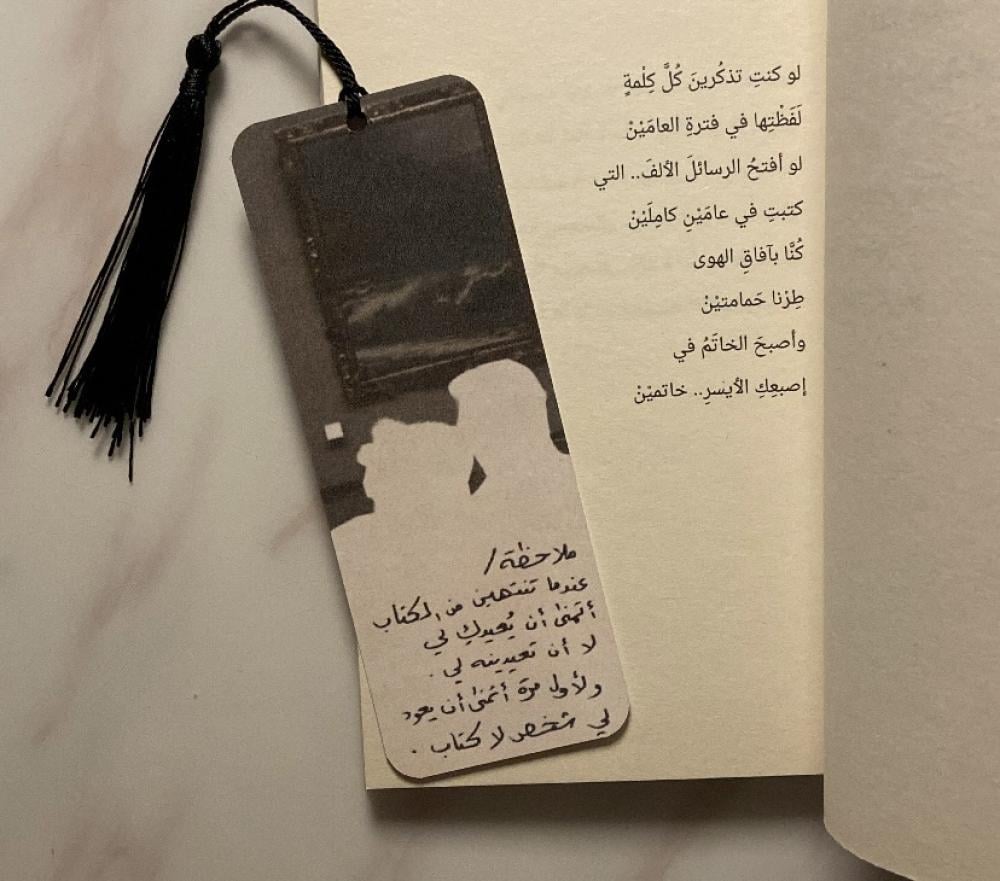 لو كنتِ تذكُرينَ كُلَّ كِلْمةٍ
لَفَظْتِها في فترةِ العامَيْنْ
لو أفتحُ الرسائلَ الألفَ.. التي
كتبتِ في عامَيْنِ كامِلَيْنْ
كُنَّا بآفاقِ الهوى
طِرْنا حَمامتيْنْ
وأصبحَ الخاتَمُ في
إصبعِكِ الأيسرِ.. خاتميْنْ
ملاحظة/
عندما تنتهين من الكتاب
أتمنى أن يُعيدكِ لي
لا أن تعيدينه لي.
ولأول مرة أتمنى أن يعود
لي شخص لا كتاب.